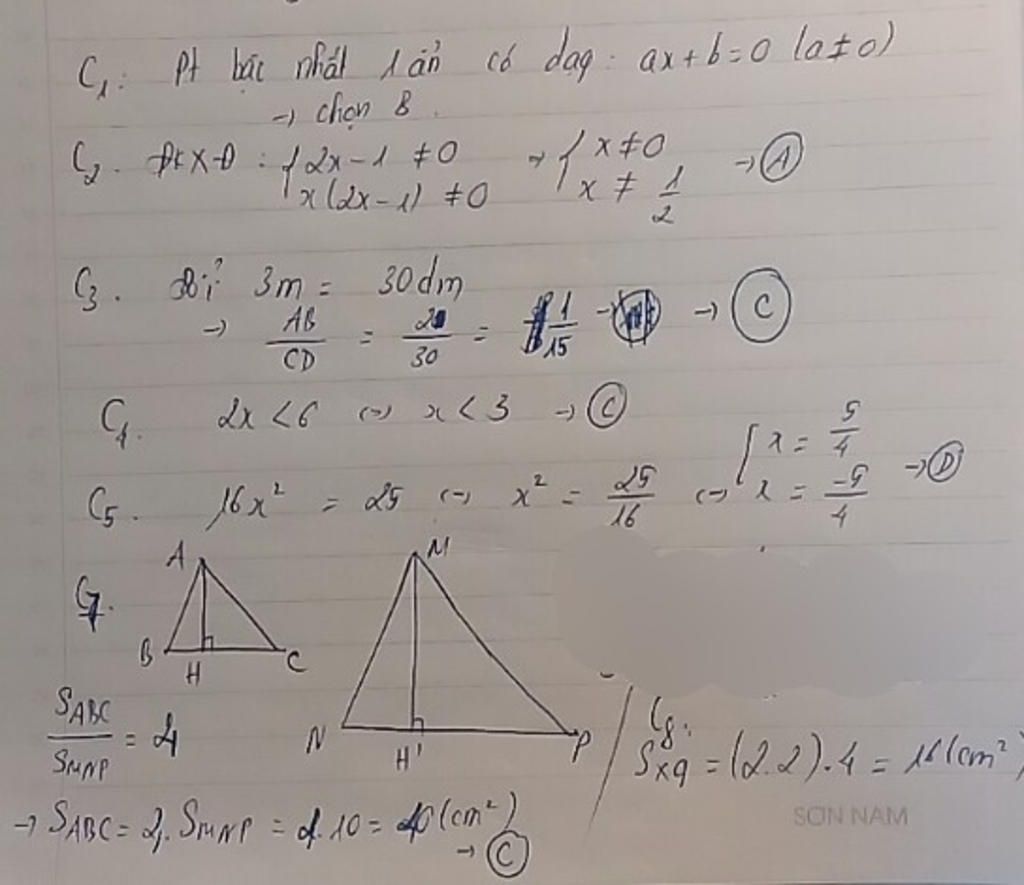 C₁: Pt bậc nhất 1 ẩn có dạg: ax + b = 0 (a ≠ 0)
→ chọn B.
C₂. ĐKXĐ: { 2x - 1 ≠ 0 → { x ≠ 0 → Ⓐ
x(2x - 1) ≠ 0 x ≠ 1/2
C₃. Đổi 3m = 30dm
→ AB/CD = 2/30 = 1/15 → Ⓒ
C₄. 2x < 6 <-> x < 3 → Ⓒ
C₅. 16x² = 25 <-> x² = 25/16 <-> [ x = 5/4
x = -5/4 → Ⓓ
C₇.
A M
B H C
N H' P
S_ABC/S_MNP = 4
→ S_ABC = 4. S_MNP = 4.10 = 40 (cm²)
→ Ⓒ
C₈.
Sxq = (2.2).4 = 16 (cm²)
SON NAM